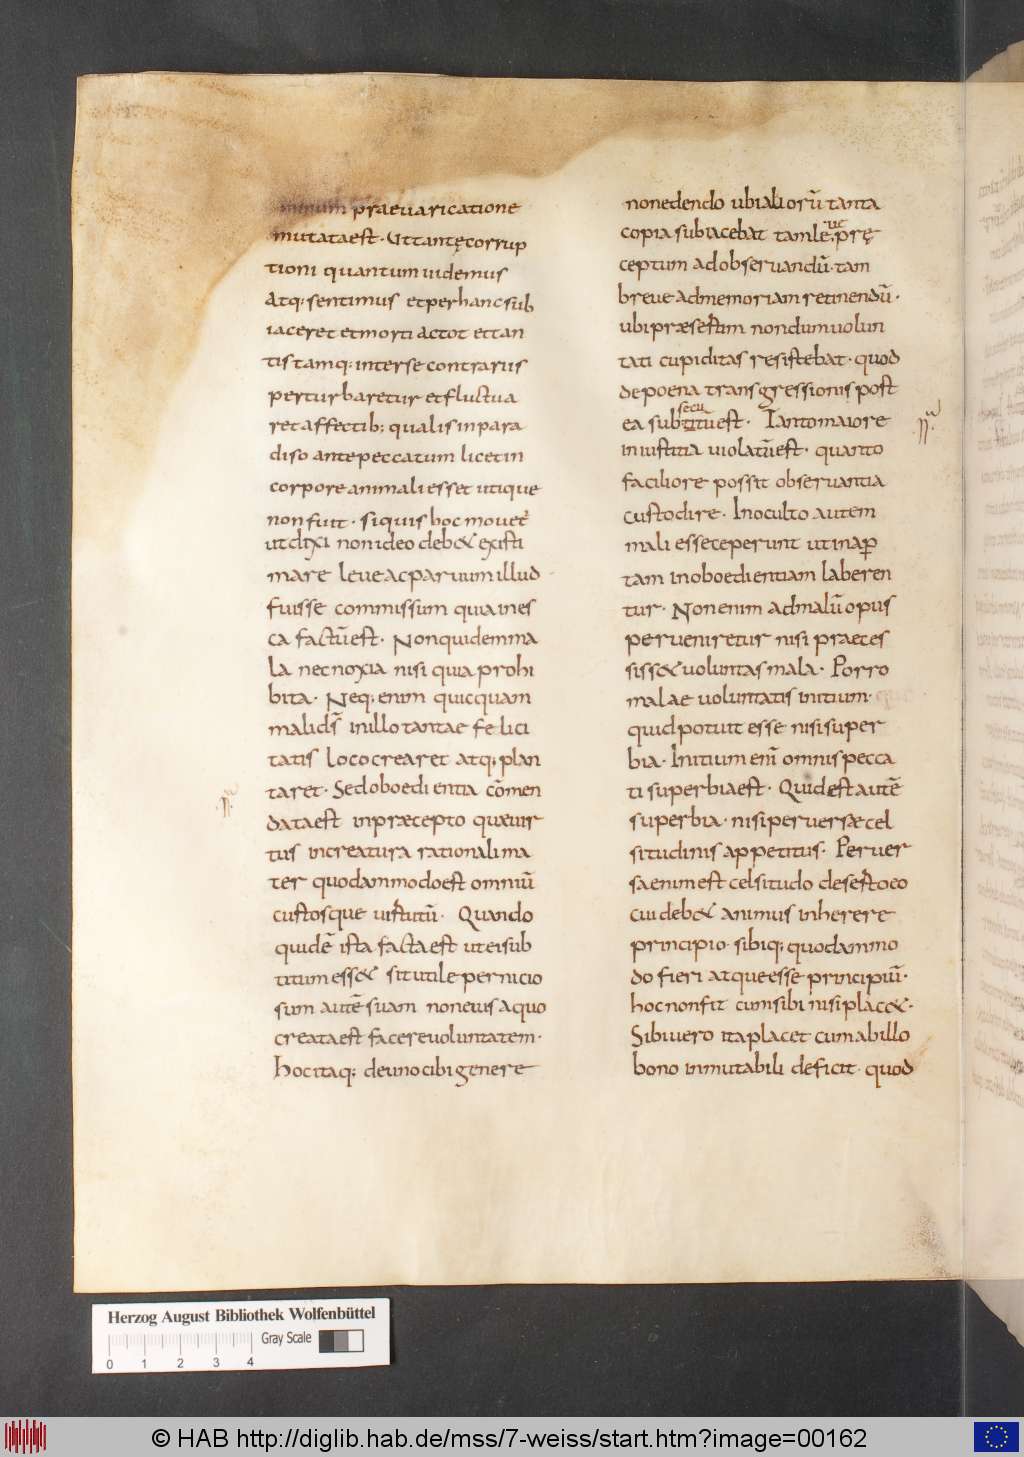 minum praevaricatione
mutataest · Ut tantę corrup
tioni quantum uidemus
Atq; sentimus et per hanc sub
iaceret et morti ac tot et tan
tis tamq; inter se contrariis
perturbaretur et fluctua
ret affectib; qualis in para
diso ante peccatum licet in
corpore animali esset utique
non fuit · si quis hoc mouet'
ut dixi non ideo deb& existi
mare leue ac paruum illud
fuisse commissum quia in es
ca factū est · Non quidem ma
la nec noxia nisi quia prohi
bita · Neq; enim quicquam
mali ds̄ in illo tantae felici
tatis loco crearet atq; plan
taret · Sed oboedientia cōmen
data est in præcepto quæ uir
tus in creatura rationali ma
ter quodammodo est omniū
custosque uirtutū · Quando
quidē ista facta est ut ei sub
titum ess& sit utile pernicio
sum autē suam non eius a quo
creata est facere uoluntatem ·
Hoc itaq; de uno cibi genere
non edendo ubi aliorū tanta
copia subiacebat tam leue prę
ceptum ad obseruandū · tam
breue ad memoriam retinendū ·
ubi præsertim nondum uolun
tati cupiditas resistebat · quod
de poena transgressionis post
ea subsecutū est · Tanto maiore
iniustitia uiolatū est · quanto
faciliore possit obseruantia
custodire · In oculto autem
mali esse ceperunt ut in ap
tam inoboedientiam laberen
tur · Non enim ad malū opus
perueniretur nisi praeces
siss& uoluntas mala · Porro
malae uoluntatis initium ·
quid potuit esse nisi super
bia · Initium enī omnis pecca
ti superbia est · Quid est autē
superbia · nisi peruersæ cel
situdinis appetitus · Peruer
sa enim est celsitudo deserto eo
cui deb& animus inherere
principio sibiq; quodammo
do fieri atque esse principiū ·
hoc non fit cum sibi nisi plac& ·
Sibi uero ita placet cum ab illo
bono inmutabili deficit · quod
Herzog August Bibliothek Wolfenbüttel
Gray Scale
0 1 2 3 4
© HAB http://diglib.hab.de/mss/7-weiss/start.htm?image=00162